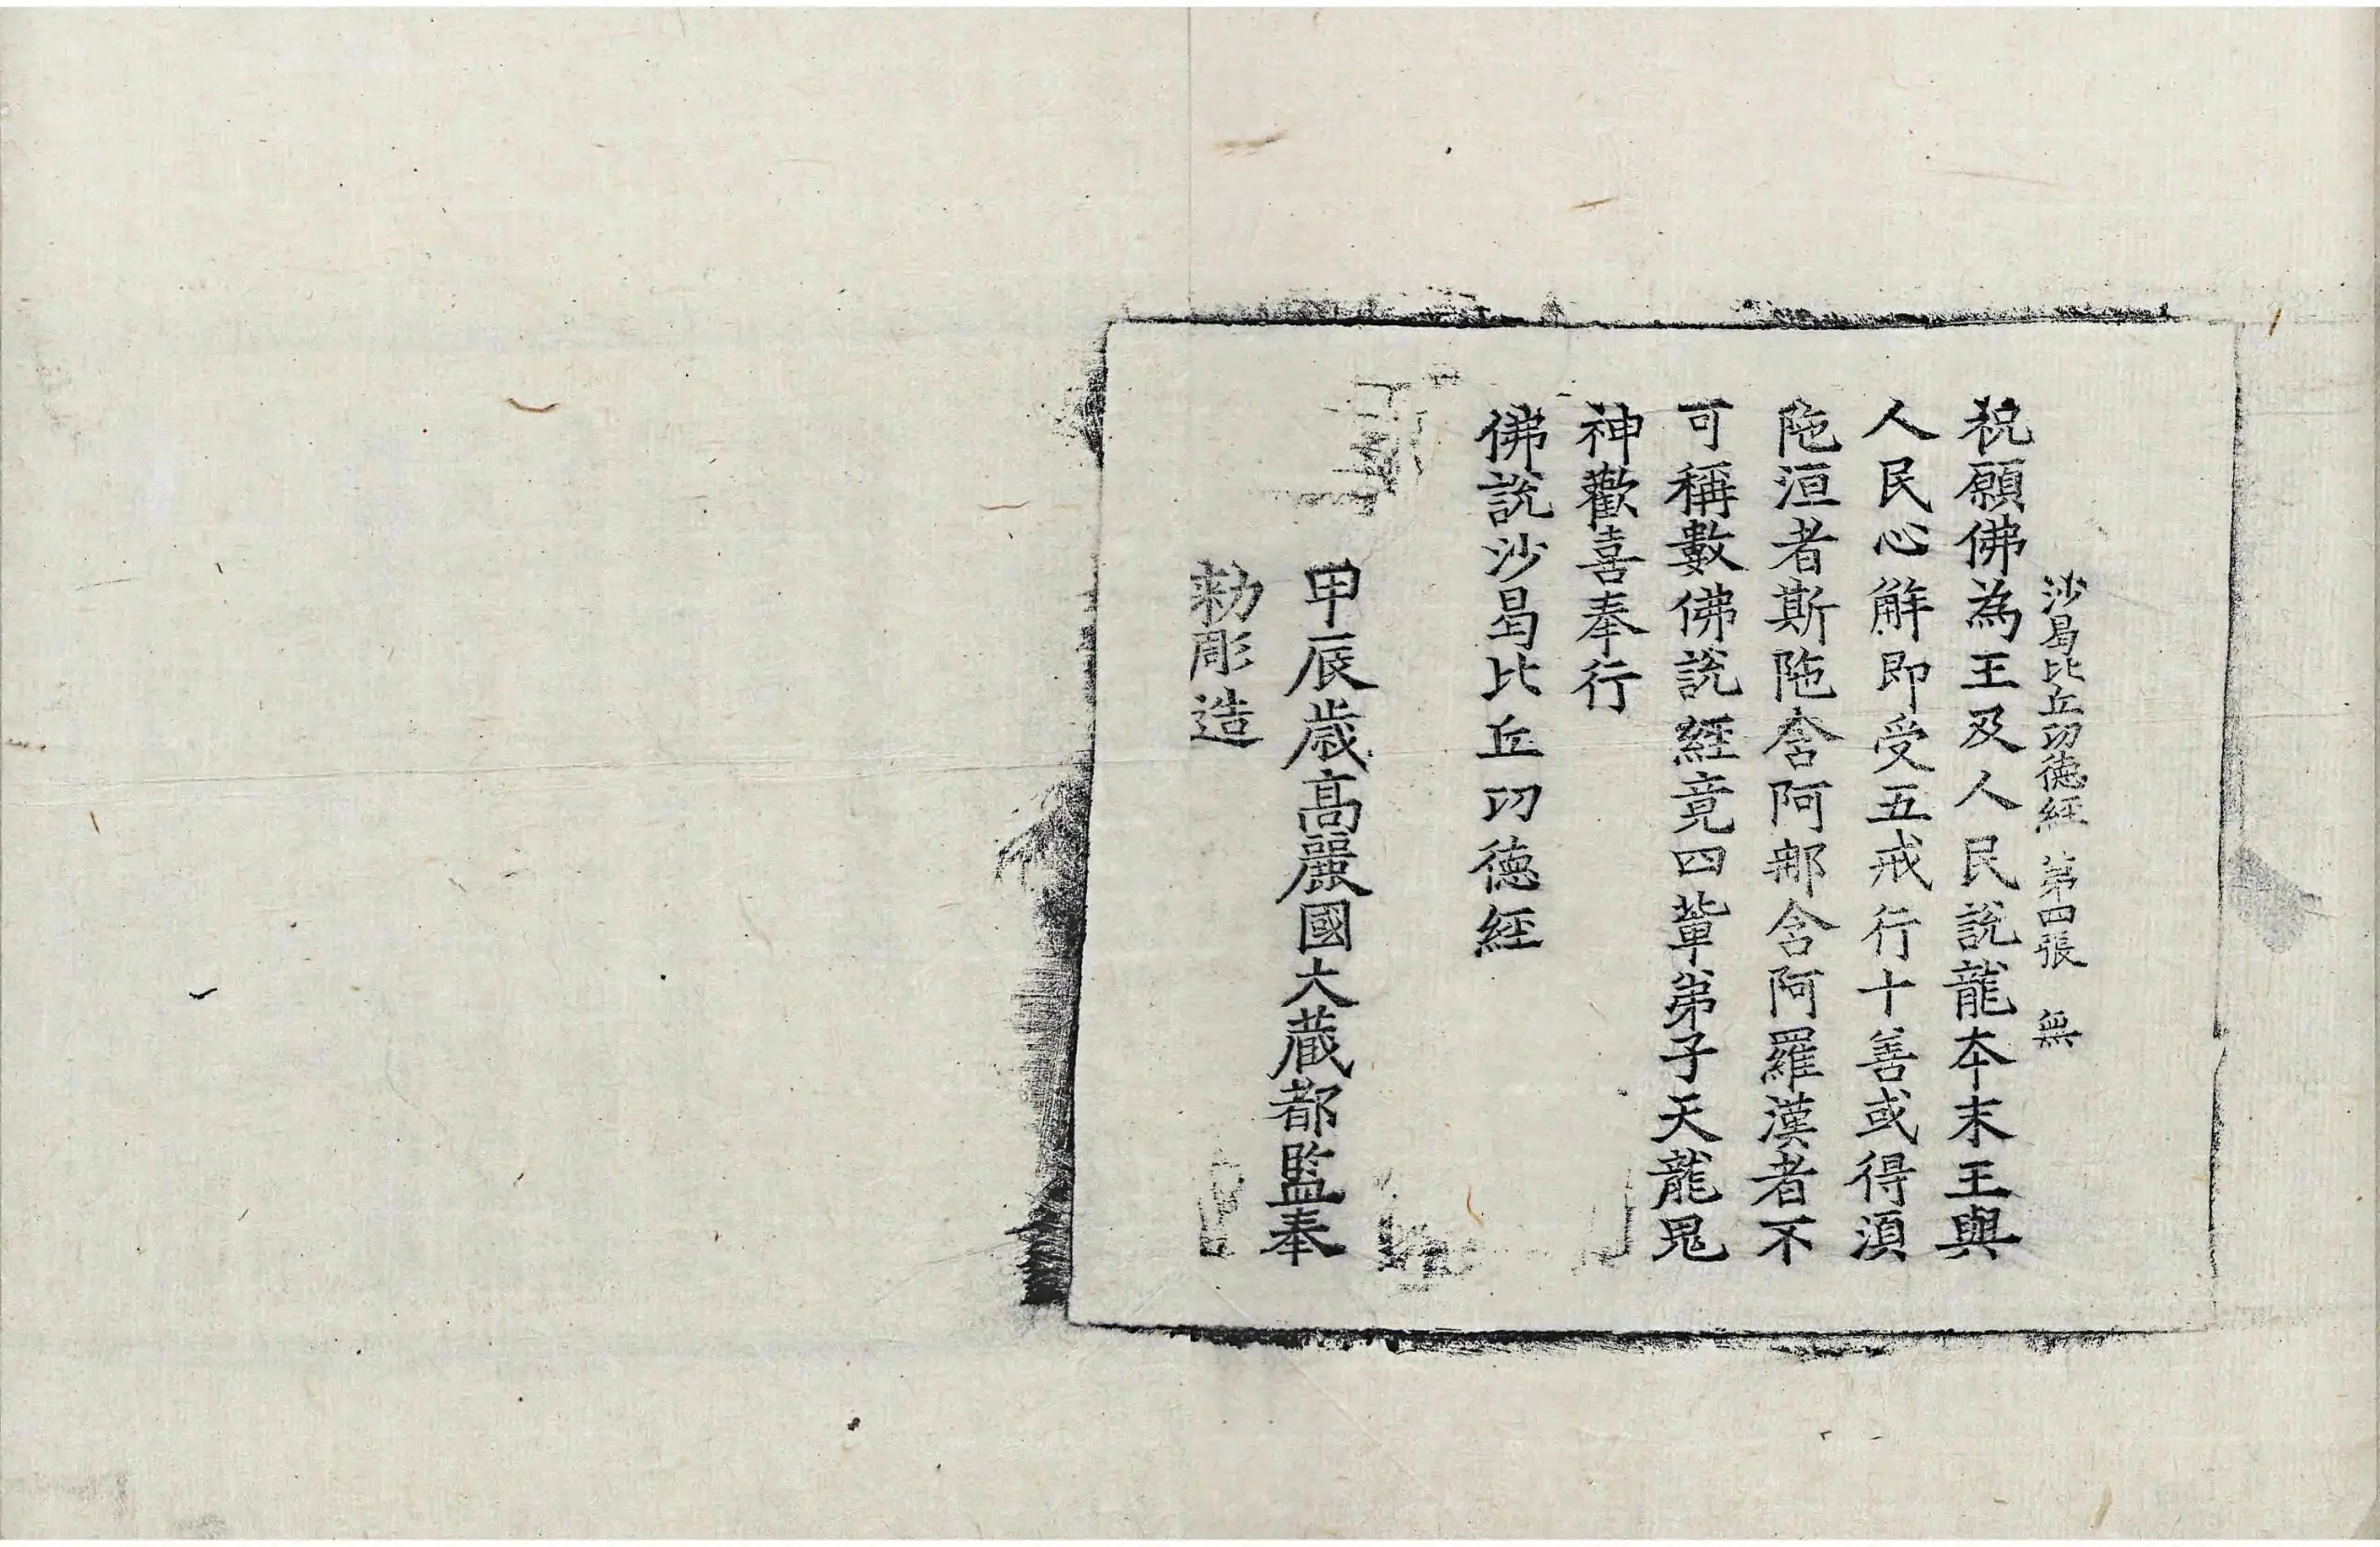 沙曷比丘功德經 第四張 無
祝願佛為王及人民說龍本末王與
人民心解即受五戒行十善或得湏
陁洹者斯陁含阿那含阿羅漢者不
可稱數佛說經竟四輩弟子天龍鬼
神歡喜奉行
佛說沙曷比丘功德經
甲辰歲高麗國大藏都監奉
勑彫造